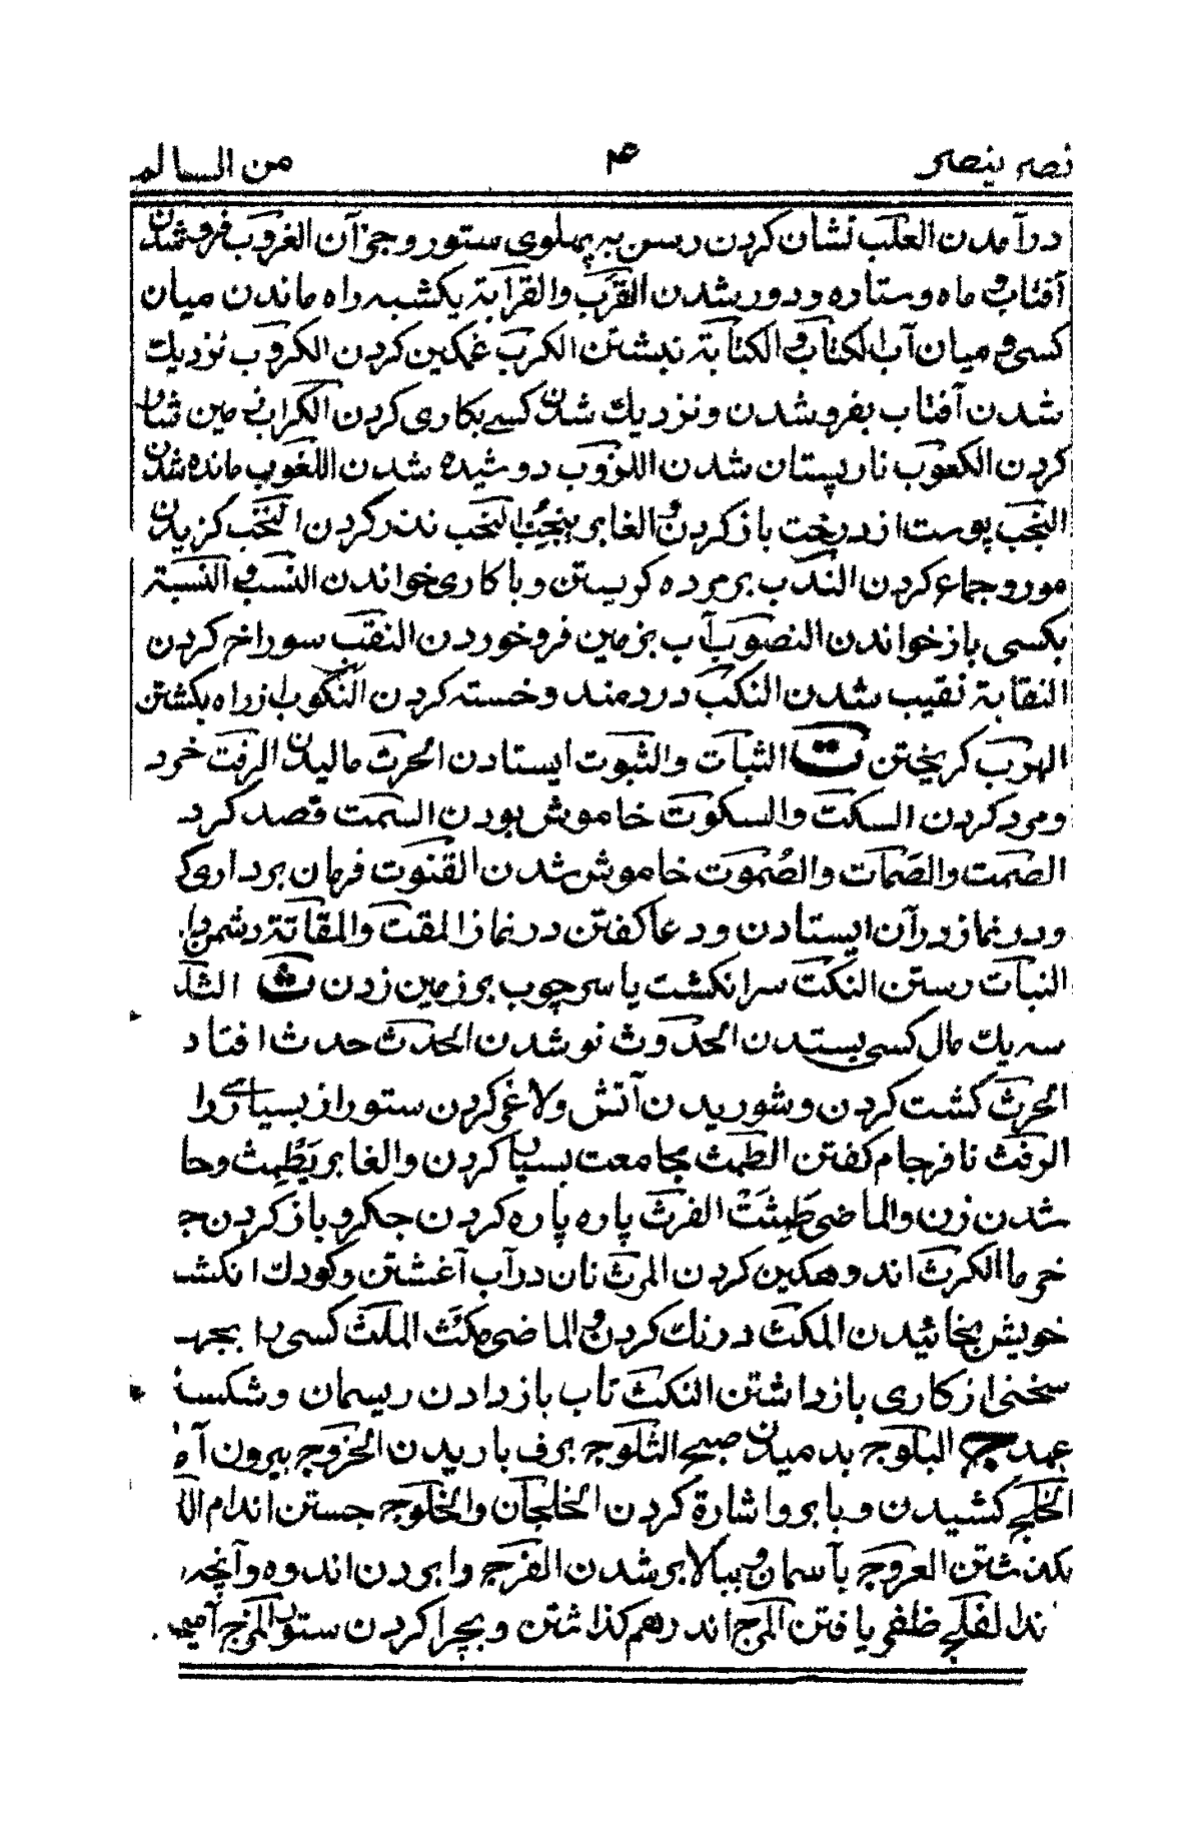 نصر ينصر ۴ من السالم
درآمدن العلب نشان کردن رسن به پهلوی ستور وجزآن الغروب فروشدن
آفتاب و ماه وستاره ودور شدن القرب والقرابة یکشبه راه ماندن میان
کسی و میان آب الکتاب و الکتابة نبشتن الکرب غمکین کردن الکروب نزدیك
شدن آفتاب بفروشدن ونزدیك شدن کسے بکاری کردن الکراب زمین شیار
کردن الکعوب نارپستان شدن اللزوب دوشیده شدن اللغوب مانده شدن
النجب پوست از درخت باز کردن و الغابر ینجب النحب نذر کردن النخب کزیدن
مور وجماع کردن الندب بر مرده کریستن وبا کاری خواندن النسب و النسبة
بکسی باز خواندن النضوب آب بزمین فرو خوردن النقب سوراخ کردن
النقابة نقیب شدن النکب دردمند وخسته کردن النکوب از راه بکشتن
الهرب کریختن ت الثبات والثبوت ایستادن الحرت مالیدن الرفت خرد
ومرد کردن السکت والسکوت خاموش بودن السمت قصد کرد
الصمت والصمات والصُموت خاموش شدن القنوت فرمان برداری ک
ودر نماز درآن ایستادن ودعا کفتن در نماز المقت والمقاتة دشمن دا
النبات رستن النکت سرانکشت یا سر چوب بر زمین زدن ث الثلث
سه یك مال کسی بستدن الحدوث نو شدن الحدث حدث افتاد
الحرث کشت کردن وشوریدن آتش ولاغر کردن ستور از بسیاری را
الرفث نافرجام کفتن الطمث مجامعت بسیار کردن والغابر یَطْمِث وحا
شدن زن والماضی طَمِثَتْ الفرث پاره پاره کردن جکر و باز کردن جـ
خرما الکرث اندوهکین کردن المرث نان درآب آغشتن وکودك انکشـ
خویش بخائیدن المکث درنك کردن و الماضی مکَث الملث کسی را بچرب
سخنی از کاری بازداشتن النکث تاب باز دادن ریسمان وشکستـ
عهد ج البلوج بدمیدن صبح الثلوج برف باریدن الخروج بیرون آم
الخلج کشیدن وبابرو اشارة کردن الخلجان والخلوج جستن اندام الد
بکذشتن العروج بآسمان و ببالا بر شدن الفرج وا بردن اندوه وآنچه
ند الفلج ظفر یافتن المرج اندرهم کذاشتن وبچرا کردن ستور المزج آمیـ